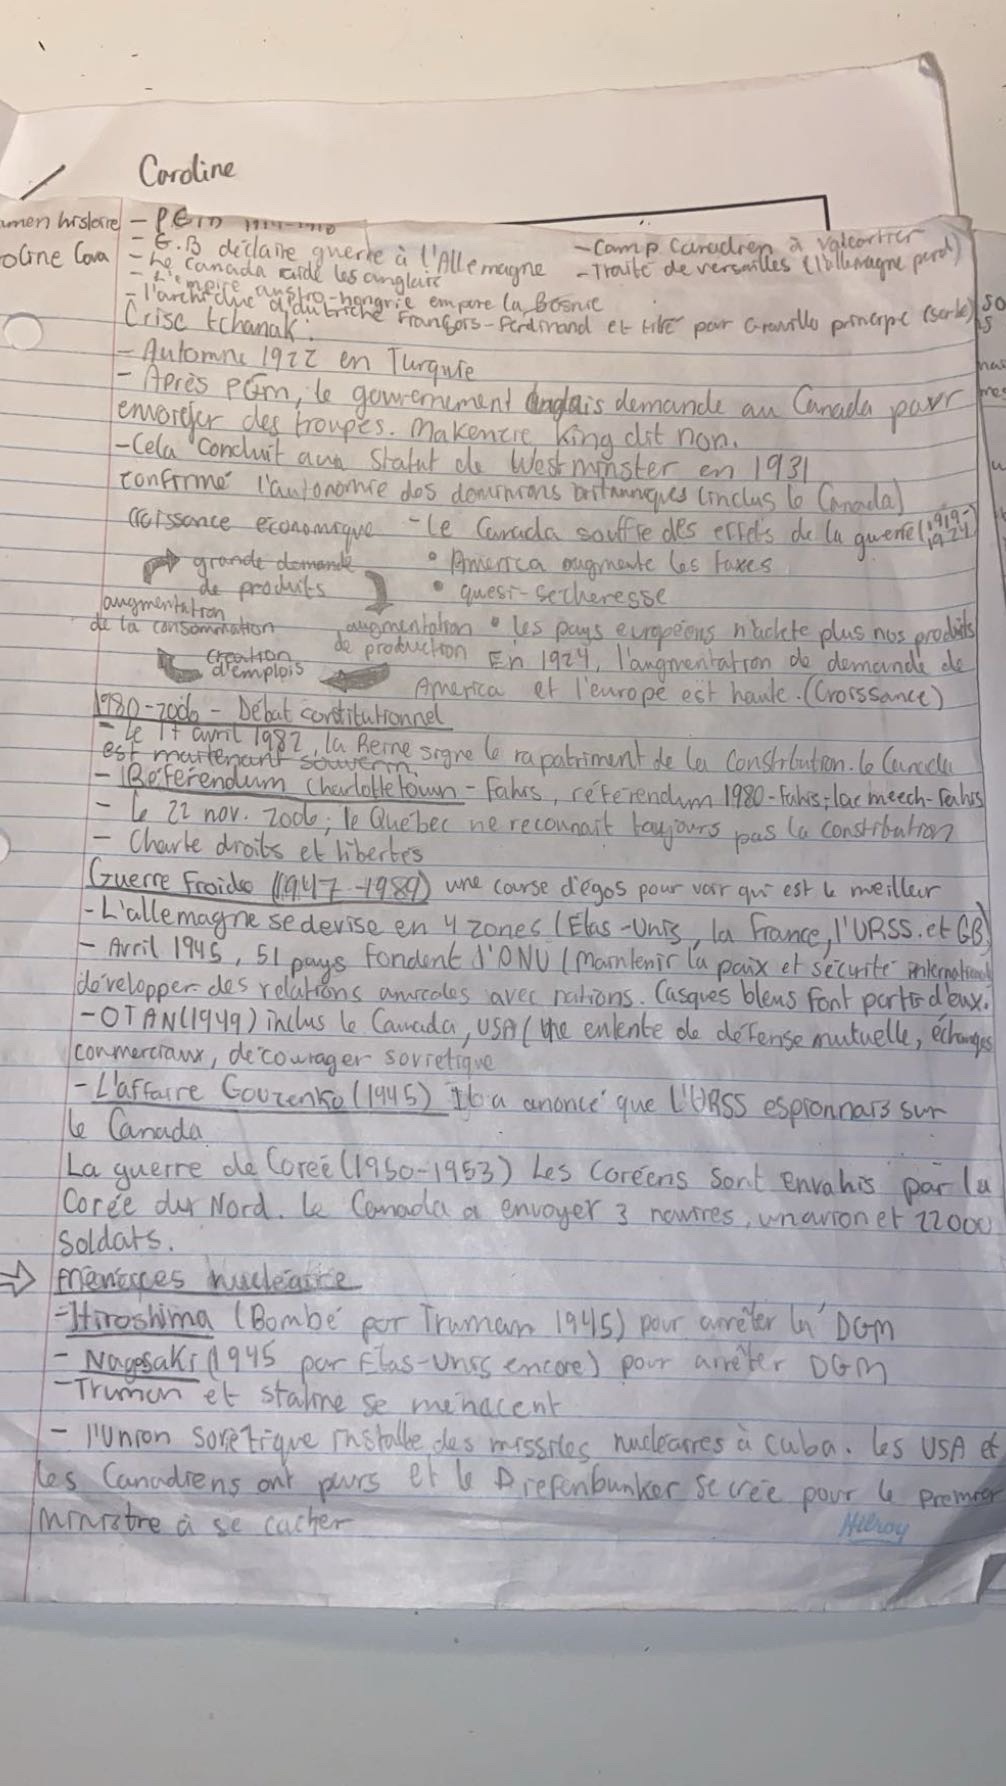 Caroline
men histoire - PGM 1914-1918
oline Cava - G.B déclaire guerre à l'Allemagne
- Camp Canadien à Valcartier
- Le Canada aide les anglais
- Traité de versailles (l'allemagne perd)
- L'empire austro-hongrie empare la Bosnie
- l'archiduc d'autriche François-Ferdinand et tiré par Gravillo principe (serbe)
Crise tchanak:
- Automne 1922 en Turquie
- Après PGM, le gouvernement Anglais demande au Canada pour
envoiejer des troupes. Makenzie King dit non.
- Cela concluit aux Statut de Westminster en 1931
confirme l'autonomie des dominions britanniques (inclus le Canada)
Croissance économique - Le Canada souffre des effets de la guerre (1919-1924)
grande demande
de produits
• America augmente les taxes
• quest-secheresse
augmentation
de la consommation
augmentation
de production
• les pays européens n'achete plus nos produits
création
d'emplois
En 1924, l'augmentation de demande de
America et l'europe est haute. (Croissance)
1980-2006 - Débat constitutionnel
- Le 17 avril 1982, la Reine signe le rapatriment de la Constitution. le Canada
est maitenant souverin.
- Référendum Charlottetown - Fahis, référendum 1980-Fahis, lac meech-Fahis
- Le 22 nov. 2006, le Québec ne reconnait toujours pas la constitution
- Charte droits et libertés
Guerre Froide (1947-1989) une course d'égos pour voir qui est le meilleur
- L'allemagne se devise en 4 zones (Etas-Unis, la France, l'URSS. et GB)
- Avril 1945, 51 pays fondent l'ONU (maintenir la paix et sécurité international
développer des relations amicales avec nations. Casques bleus font partis d'eux.
- OTAN (1949) inclus le Canada, USA (Une entente de défense mutuelle, échanges
commerciaux, décourager sovietique
- L'affaire Gouzenko (1945) Il a anoncé que L'URSS espionnais sur
le Canada
La guerre de Coreé (1950-1953) Les coréens sont envahis par la
Corée du Nord. Le Canada a envoyer 3 navires, un avion et 22000
soldats.
⇒ Menaces nucléaire
- Hiroshima (Bombé par Truman 1945) pour arrêter la DGM
- Nagasaki (1945 par Etas-Uniss encore) pour arrêter DGM
- Truman et staline se menacent
- l'Union soviétique installe des missiles nucléaires à cuba. les USA et
les Canadiens ont peurs et le Diefenbunker se crée pour le premier
ministre à se cacher
Hilroy